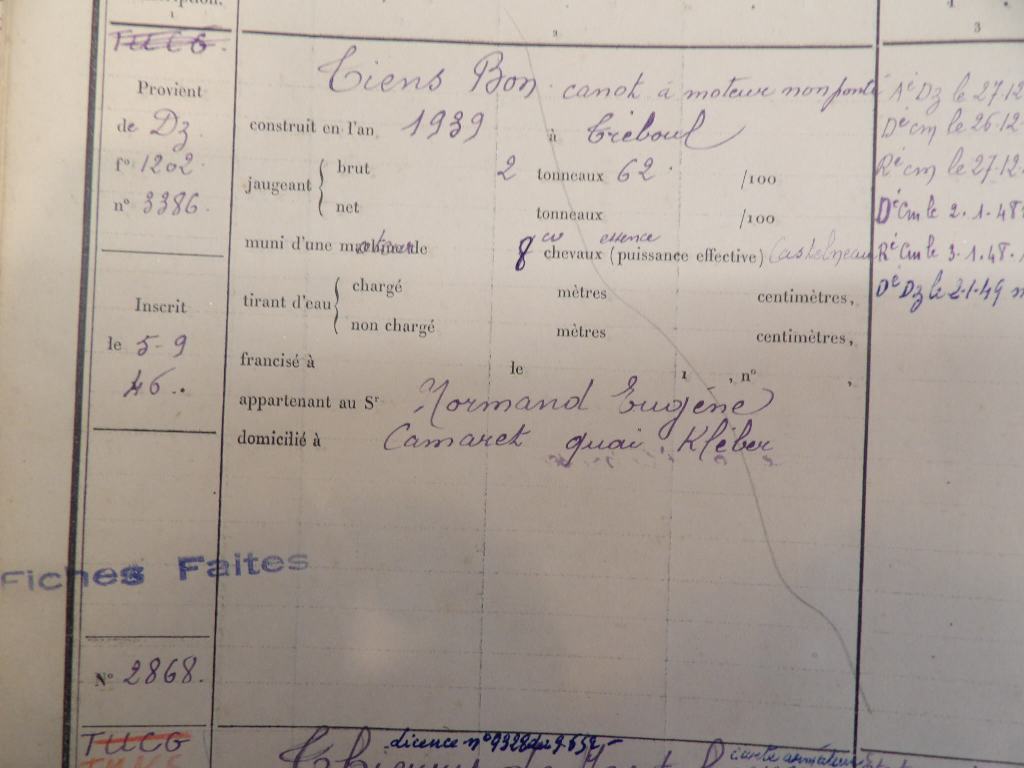 1
2
3
TUCG.
Provient
de Dz
f° 1202.
n° 3386.
Inscrit
le 5-9
46..
Fiches Faites
N° 2868.
TUCG
Tiens Bon canot à moteur non ponté
construit en l'an 1939 à Tréboul
jaugeant
brut 2 tonneaux 62. /100
net tonneaux /100
muni d'une machine de 8 cv essence chevaux (puissance effective) Castelneau
tirant d'eau
chargé mètres centimètres,
non chargé mètres centimètres,
francisé à le 1 , n° ,
appartenant au Sr Normand Eugène
domicilié à Camaret quai Kléber
Aé Dz le 27.12
Dé Cm le 26.12
Ré Cm le 27.12
Dé Cm le 2.1.48
Ré Cm le 3.1.48.
Dé Dz le 2.1.49
Licence n° 9328 du